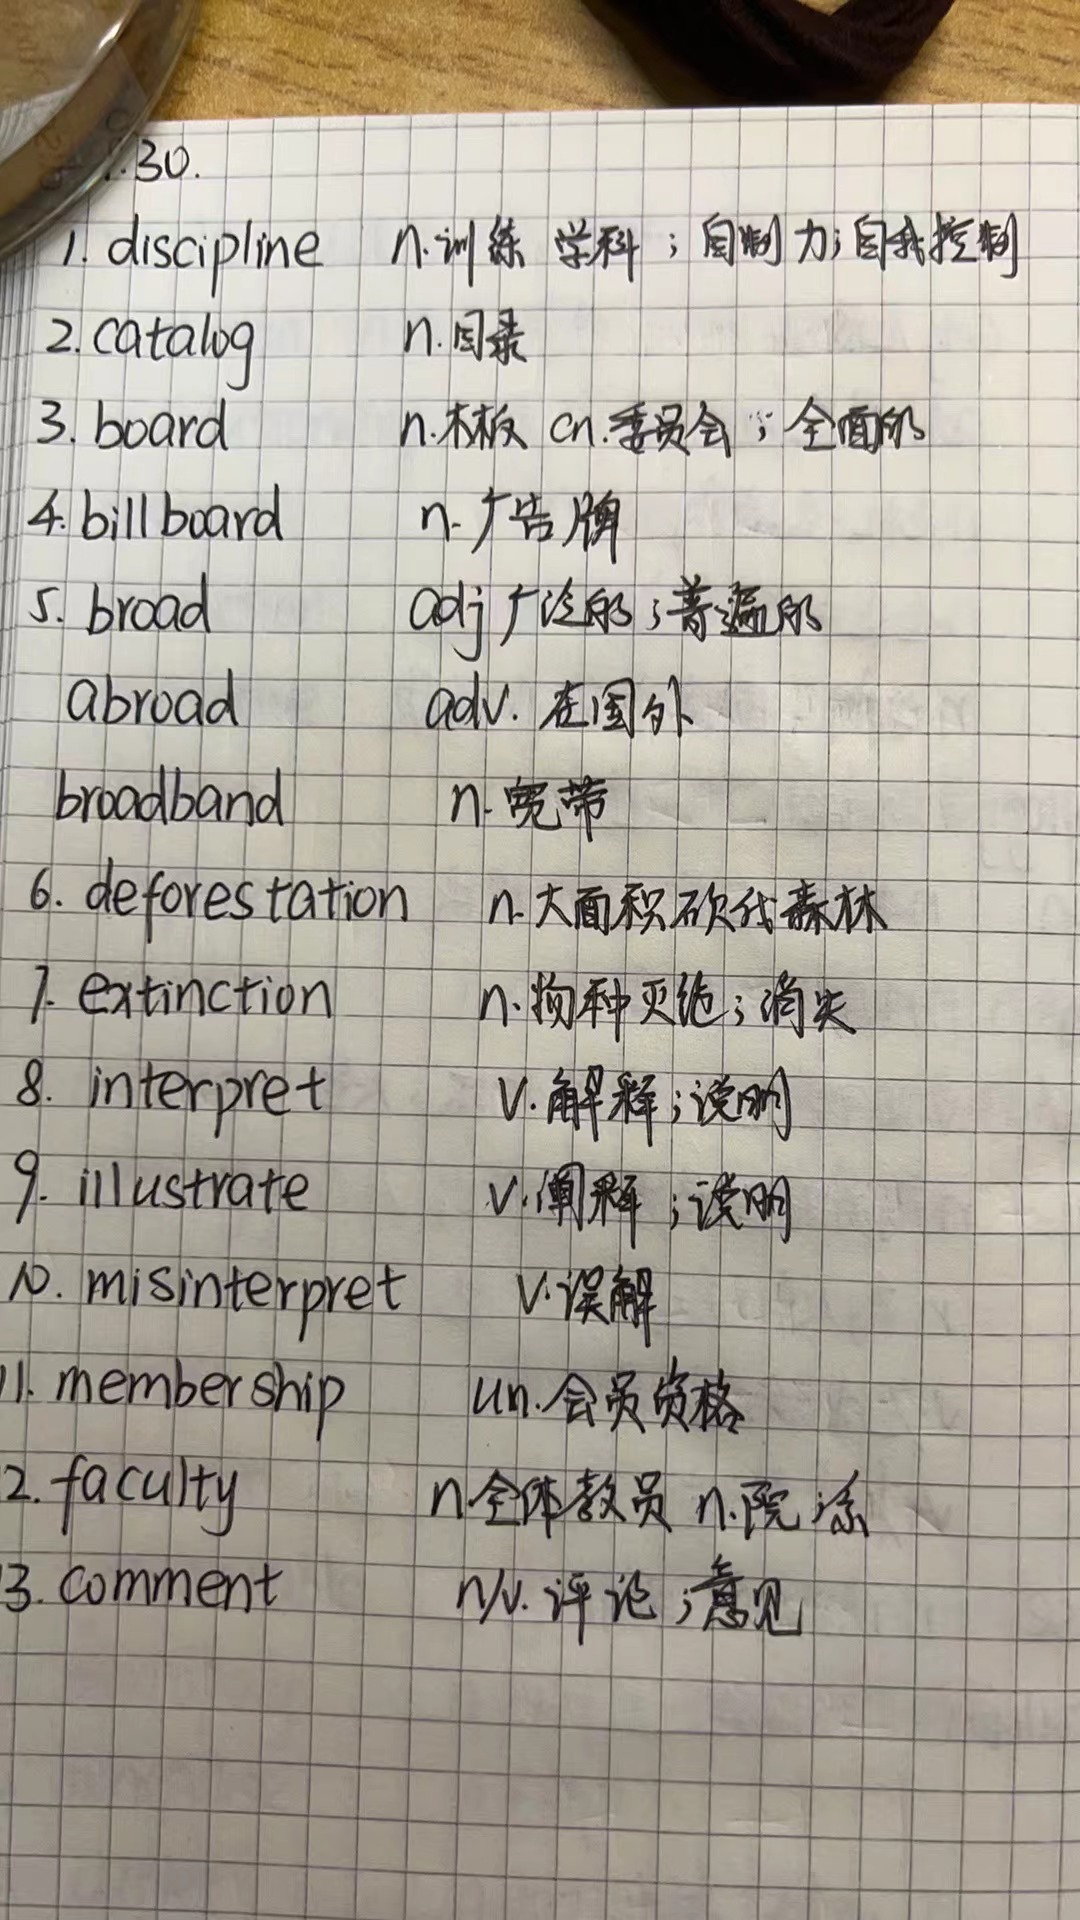 .30.
1. discipline n.训练 学科；自制力；自我控制
2. catalog n.目录
3. board n.木板 cn.委员会；全面的
4. billboard n.广告牌
5. broad adj广泛的；普遍的
abroad adv. 在国外
broadband n.宽带
6. deforestation n.大面积砍伐森林
7. extinction n.物种灭绝；消失
8. interpret v.解释；说明
9. illustrate v.阐释；说明
10. misinterpret v.误解
11. membership un.会员资格
2. faculty n全体教员 n.院；系
3. comment n/v.评论；意见